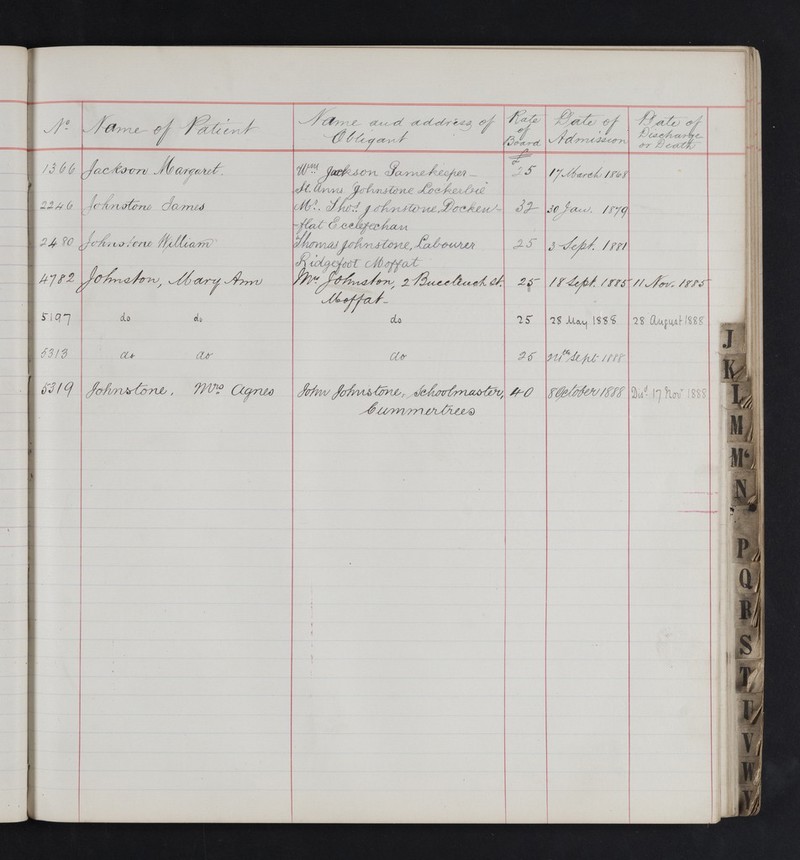 No. Name of Patient Name and address of Obligant Rate of Board £ Date of Admission Date of Discharge or Death
1366 Jackson Margaret. Wm Jackson Gamekeeper - 25 17 March 1868
St. Anns Johnstone Lockerbie
2246 Johnstone James Mr. Thos. Johnstone, Docken- 32 30 Jan. 1879
-flat Ecclefechan
2480 Johnstone William Thomas Johnstone, Labourer 25 3 Sept. 1881
Ridgefoot Moffat
4782 Johnston, Mary Ann Mrs Johnston, 2 Buccleuch St. 25 18 Sept. 1885 11 Nov. 1885
Moffat
5197 do do do 25 28 May 1888 28 August 1888
5313 do do do 25 Sept 1888
5319 Johnstone, Mrs Agnes John Johnstone, Schoolmaster, 40 8 October 1888 Disd. 17 Novr 1888
Cummertrees
J
K
L
M
Mc
N
P
Q
R
S
T
U
V
W
Y